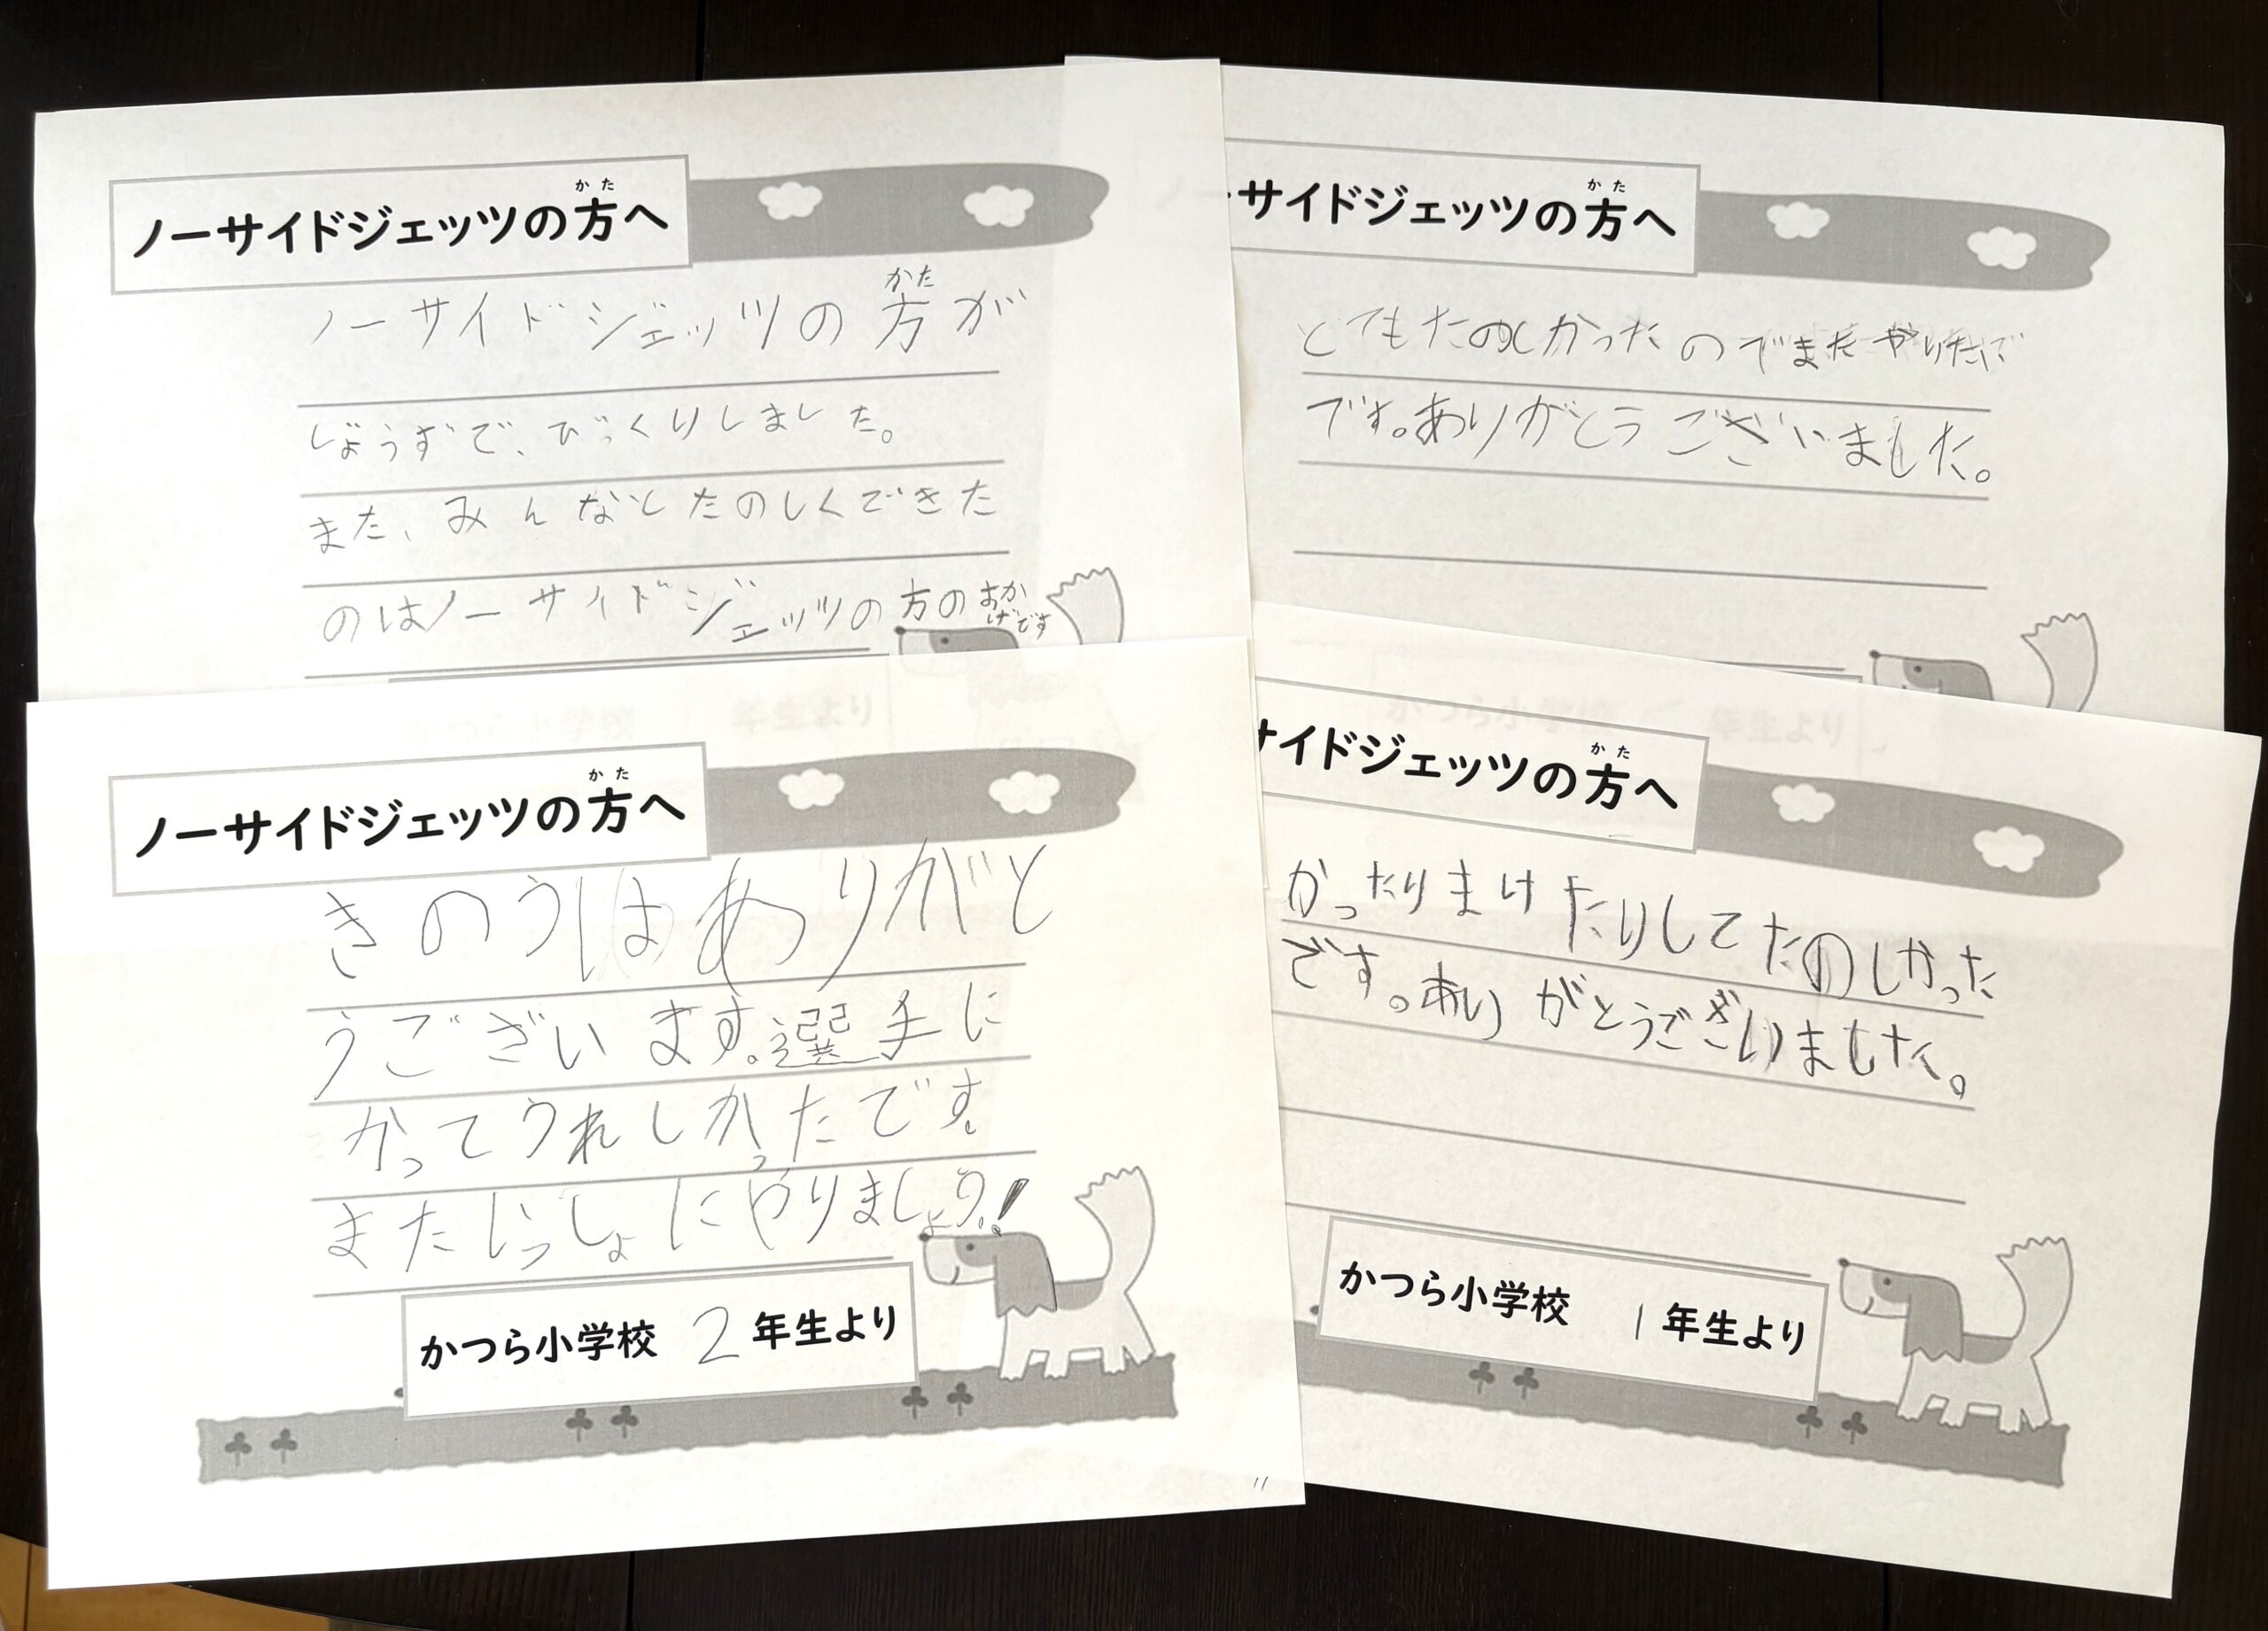 かた
ノーサイドジェッツの方へ
かた
ノーサイドジェッツの方が
じょうずで、びっくりしました。
また、みんなとたのしくできた
のはノーサイドジェッツの方のおか
げです
かた
ーサイドジェッツの方へ
とてもたのしかったのでまたやりたいで
です。ありがとうございました。
かた
ノーサイドジェッツの方へ
きのうはありがと
うございます。選手に
かってうれしかったです。
またいっしょにやりましょう!
かつら小学校 2 年生より
かた
サイドジェッツの方へ
かったりまけたりしてたのしかった
です。ありがとうございました。
かつら小学校 1 年生より